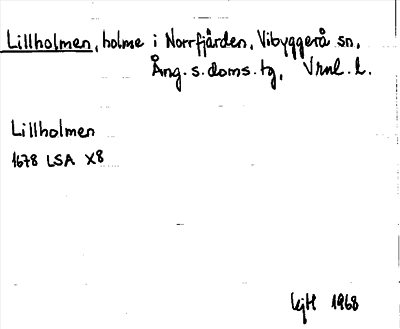 Lillholmen, holme i Norrfjärden, Vibyggerå sn.
Ång. s. doms. tg, Vrnl. l.
Lillholmen
1678 LSA X8
1968